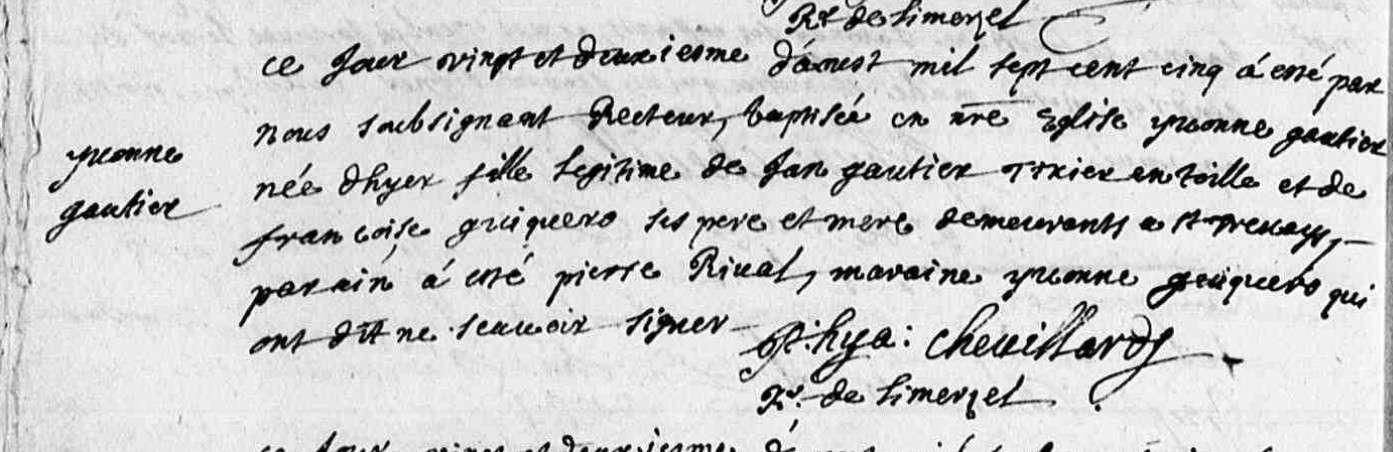 Rr de Limerzel
ce Jour vingt et deuxiesme d'aoust mil sept cent cinq á esté par
nous soubsignant Recteur, baptisée en nre Eglise yvonne gautier
yvonne
gautier
née d'hyer fille legitime de Jan gautier Texier en toille et de
francoise guiquero ses pere et mere demeurants a
parain á esté pierre Rival, maraine yvonne guiquero qui
ont dit ne scavoir signer
chevillard
Rr. de Limerzel
ce Jour vingt et deuxiesme